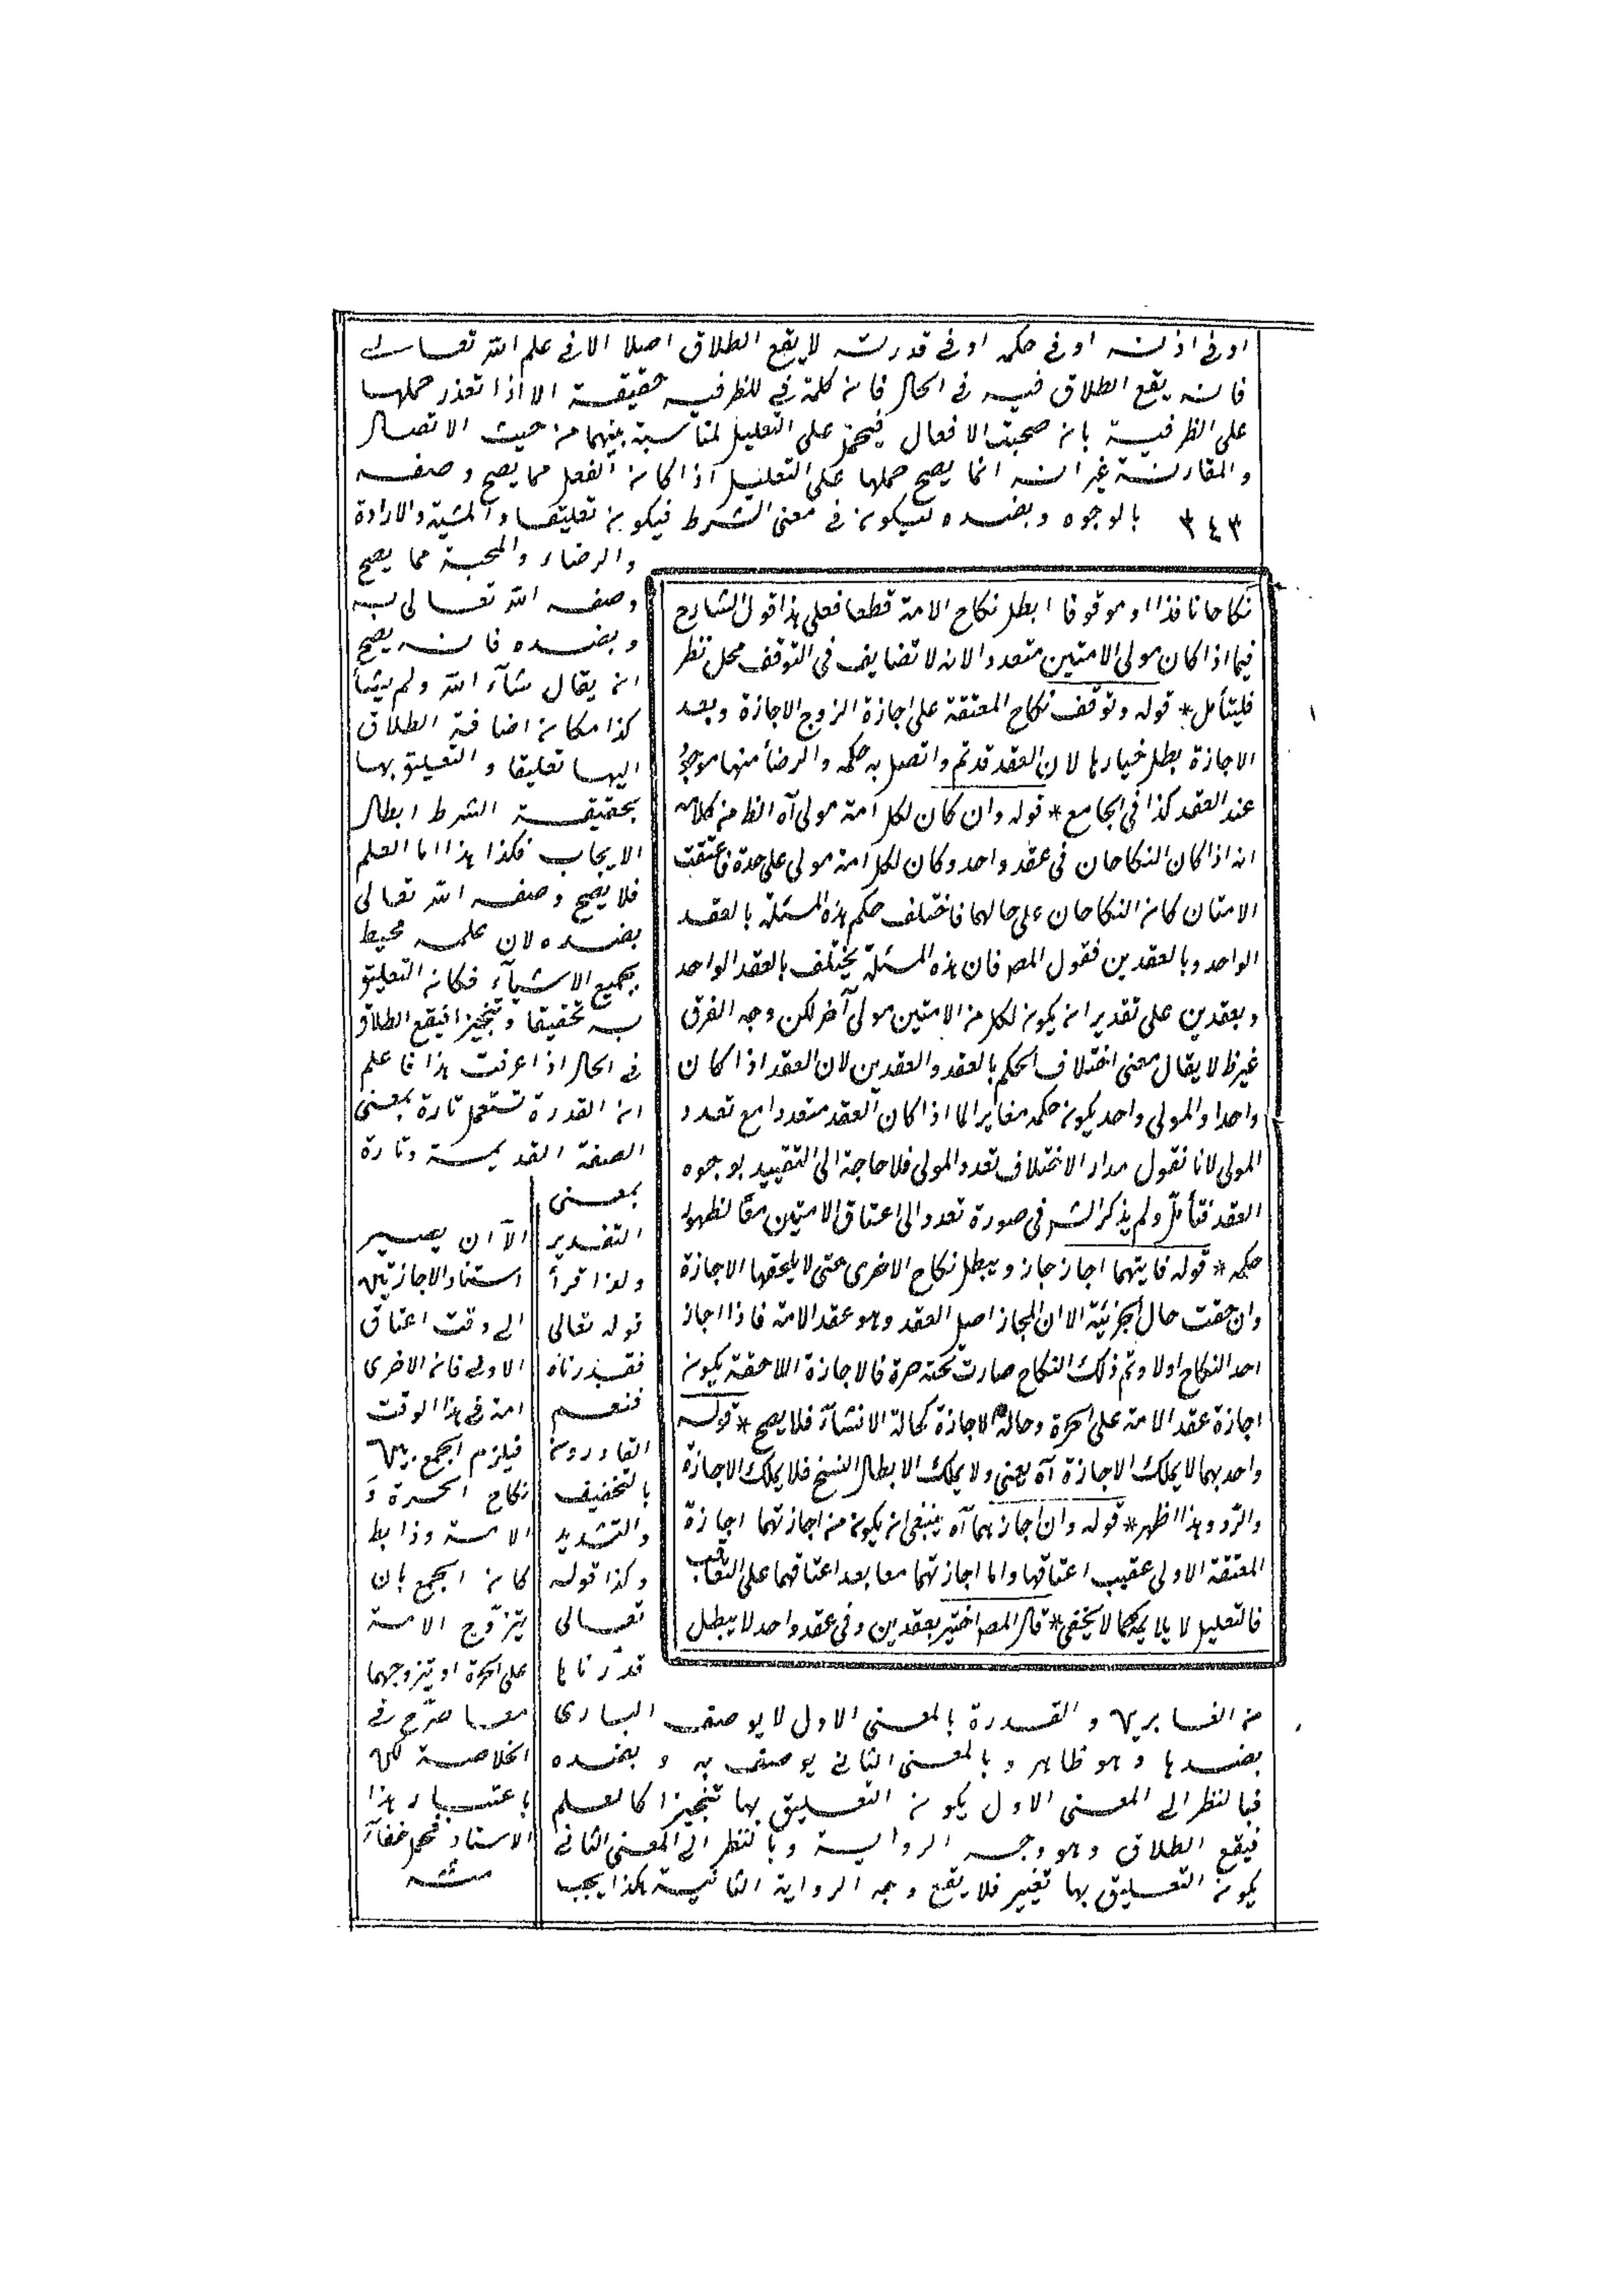 او فى اذنه او فى حكمه او فى قدرته لا يقع الطلاق اصلا الا فى علم الله تعالى
فانه يقع الطلاق فيه فى الحال فان كلمة فى للظرفية حقيقة الا اذا تعذر حملها
على الظرفية بان صحبت الافعال فيحمل على التعليل لمناسبة بينهما من حيث الاتصال
والمقارنة غير انه انما يصح حملها على التعليل اذا كان الفعل مما يصح وصفه
٣٤٣ بالوجوه وبضده ليكون فى معنى الشرط فيكون تعليقا والمشية والارادة
والرضاء والمحبة مما يصح
وصف الله تعالى به
وبضده فانه يصح
ان يقال شآء الله ولم يشأ
كذا فكان اضافة الطلاق
اليها تعليقا والتعليق بها
بحقيقة الشرط ابطال
الايجاب فكذا هذا اما العلم
فلا يصح وصف الله تعالى
بضده لان علمه محيط
بجميع الاشيآء فكان التعليق
به تحقيقا وتنجيزا فيقع الطلاق
فى الحال اذا عرفت هذا فاعلم
ان القدرة تستعمل تارة بمعنى
الصفة القديمة وتارة
بمعنى
التقدير
ولذا قرأ
قوله تعالى
فقدرناه
فنعم
القادرون
بالتخفيف
والتشديد
وكذا قوله
تعالى
قدّرناها
من الغابرين والقدرة بالمعنى الاول لا يوصف البارى
بضدها وهو ظاهر وبالمعنى الثانى يوصف به وبضده
فبالنظر الى المعنى الاول يكون التعليق بها تنجيزا كالعلم
فيقع الطلاق وهو وجه الرواية وبالنظر الى المعنى الثانى
يكون التعليق بها تغيير فلا يقع وجه الرواية الثانية هكذا يجب
نكاحا نافذا او موقوفا ابطل نكاح الامة قطعا فعلى هذا قول الشارح
فيما اذا كان مولى الامتين متعددا لانه لا تضايف فى التوقف محل نظر
فليتأمل * قوله وتوقف نكاح المعتقة على اجازة الزوج الاجازة وبعد
الاجازة بطل خيارها لان العقد قد تم واتصل به حكمه والرضأ منها موجود
عند العقد كذا فى الجامع * قوله وان كان لكل امة مولى آه الظ من كلامه
انه اذا كان النكاحان فى عقد واحد وكان لكل امة مولى على حدة فاعتقت
الامتان كان النكاحان على حالهما فاختلف حكم هذه المسئلة بالعقد
الواحد وبالعقدين فقول المص فان هذه المسئلة يختلف بالعقد الواحد
وبعقدين على تقدير ان يكون لكل من الامتين مولى آخر لكن وجه الفرق
غير ظ لا يقال معنى اختلاف الحكم بالعقد والعقدين لان العقد اذا كان
واحدا والمولى واحد يكون حكمه مغايرا لما اذا كان العقد متعددا مع تعدد
المولى لانا نقول مدار الاختلاف تعدد المولى فلا حاجة الى التقييد بوجوه
العقد فتأمل ولم يذكر الشر فى صورة تعدد الى اعتاق الامتين معًا لظهور
حكمه * قوله فايتهما اجاز جاز ويبطل نكاح الاخرى حتى لا يلحقها الاجازة
وان حقت حال الجزئية الا ان المجاز اصل العقد وهو عقد الامة فاذا اجاز
احد النكاح اولا وتم ذلك النكاح صارت تحته حرة فالاجازة اللاحقة يكون
اجازة عقد الامة على الحرة وحالة الاجازة كحالة الانشآء فلا يصح * قوله
واحد بهما لا يملك الاجازة آه يعنى ولا يملك الابطال النسخ فلا يملك الاجازة
والرد وهذا اظهر * قوله وان اجازهما آه ينبغى ان يكون من اجازتهما اجازة
المعتقة الاولى عقيب اعتاقها واما اجازتهما معا بعد اعتاقهما على التعاقب
فالتعليل لا يلايمه كما لا يخفى * قال المص اختير بعقدين وفى عقد واحد لا يبطل
الآ ان يصير
استناد الاجازتين
الى وقت اعتاق
الاولى فان الاخرى
امة فى هذا الوقت
فيلزم الجمع بين
نكاح الحرة و
الامة وذا بط
كان الجمع بان
يتزوج الامة
على الحرة او يتزوجهما
معا صرّح فى
الخلاصة لكن
باعتبار هذا
الاستناد محل خفآء
منه